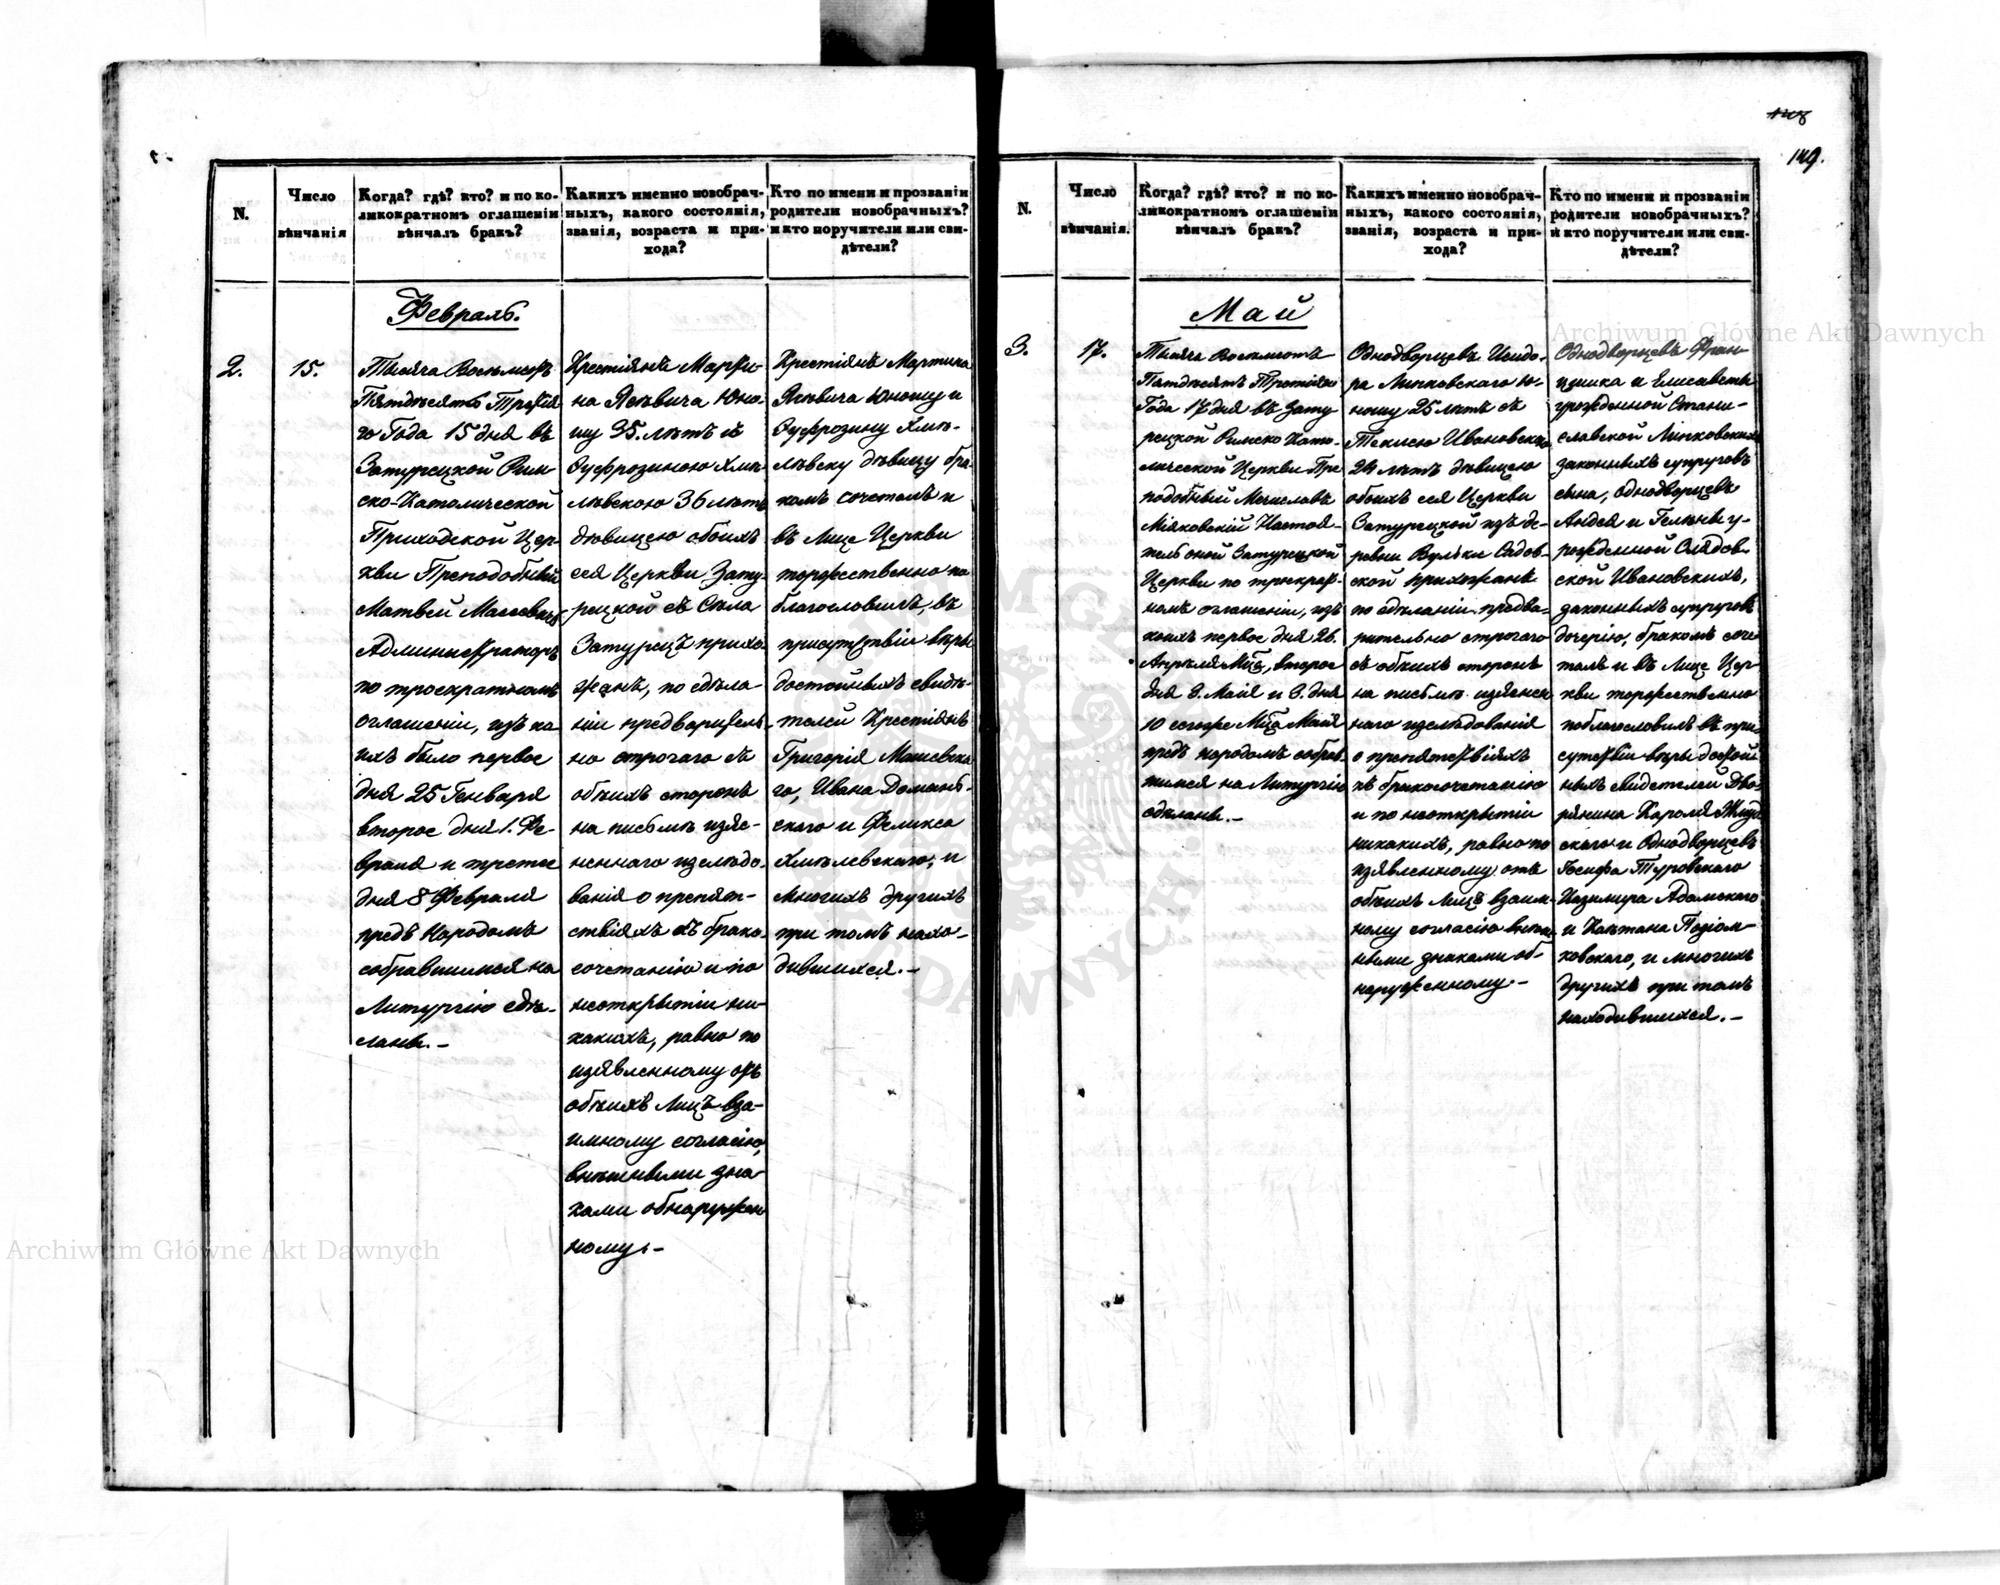 148
149.
N.
Число
вѣнчанія
Когда? гдѣ? кто? и по ко-
ликократномъ оглашеніи
вѣнчалъ бракъ?
Какихъ именно новобрач-
ныхъ, какого состоянія,
званія, возраста и при-
хода?
Кто по имени и прозванію
родители новобрачныхъ?
и кто поручители или сви-
дѣтели?
Февраль.
2.
15.
Тысяча Восемьсотъ
Пятдесятъ Третья
го Года 15 дня въ
Затурецкой Рим-
ско-Католической
Приходской Цер-
кви Преподобный
Матвей
Администраторъ
по троекратномъ
оглашеніи, изъ ко
ихъ было первое
дня 25 Генваря
второе дня 1. Фе-
враля и третее
дня 8 Февраля
предъ Народомъ
собравшимся на
Литургію сдѣ-
ланы.-
Крестіянъ Марти-
на Яcѣвича Юно-
шу 35. лѣтъ съ
Эуфрозиною Хмѣ-
лѣвскою 36 лѣтъ
дѣвицею обоихъ
сея Церкви Зату-
рецкой съ Села
Затурецъ прихо-
жанъ, по сдѣла-
ніи предваритель-
но строгаго съ
обѣихъ сторонъ
на письмѣ изяс-
неннаго изслѣдо-
ванія о препят-
ствіяхъ къ брако-
сочетанію и по
неоткрытіи ни-
какихъ, равно по
изявленному отъ
обѣихъ Лицъ вза-
имному согласію,
внѣшными зна-
ками обнаружен
ному.-
Крестіянъ Мартина
Яcѣвича Юношу и
Эуфрозину Хмѣ-
лѣвску дѣвицу бра-
комъ сочеталъ и
въ Лице Церкви
торжественно по
благословилъ, въ
присутствіи вѣры
достойныхъ свидѣ-
телей Крестіянъ
Григорія
го, Ивана Домань-
скаго и Феликса
Хмѣлевскаго, и
многихъ другихъ
при томъ нахо-
дившихся.-
N.
Число
вѣнчанія.
Когда? гдѣ? кто? и по ко-
ликократномъ оглашеніи
вѣнчалъ бракъ?
Какихъ именно новобрач-
ныхъ, какого состоянія,
званія, возраста и при-
хода?
Кто по имени и прозванію
родители новобрачныхъ?
и кто поручители или сви-
дѣтели?
Май
3.
17.
Тысяча Восемьсотъ
Пятдесятъ Третьяго
Года 17 дня въ Зату
рецкой Римско Като-
лической Церкви Пре
подобный Мечиславъ
Міяковскій Настоя-
тель оной Затурецкой
Церкви по троекрат-
номъ оглашеніи, изъ
коихъ первое дня 26.
Апрѣля Мца, второе
дня 3. Маія и 3. дня
10 тогоже Мца Маія
предъ народомъ собрав
шимся на Литургію
сдѣланы.-
Однодворцевъ Исидо-
ра Липковскаго Ю-
ношу 25 лѣтъ съ
Теклею Ивановскою
24 лѣтъ дѣвицею
обоихъ сея Церкви
Затурецкой изъ де-
ревни Вульки Садов-
ской прихожанъ
по сдѣланіи предва-
рительно строгаго
съ обѣихъ сторонъ
на письмѣ изяснен
наго изслѣдованія
о препятствіяхъ
къ бракосочетанію
и по неоткрытіи
никакихъ, равно по
изявленному отъ
обѣихъ Лицъ взаим-
ному согласію внѣш
ными знаками об-
наруженному.-
Однодворцевъ Фран-
цишка и Елисаветы
урожденной Стани-
славской Липковскихъ
законныхъ супруговъ
сына, однодворцевъ
Андрея и Гелены у-
рожденной Слядов-
ской Ивановскихъ,
законныхъ супруговъ
дочерію, бракомъ соче
талъ и въ Лице Цер-
кви торжественно
поблагословилъ въ при-
сутствіи вѣры достой
ныхъ свидетелей Дво-
рянина Кароля
скаго и Однодворцевъ
Іосифа Туровскаго
Казимира Адамскаго
и Каетана Позіом-
ковскаго, и многихъ
другихъ при томъ
находившихся.-
Archiwum Główne Akt Dawnych
Archiwum Główne Akt Dawnych